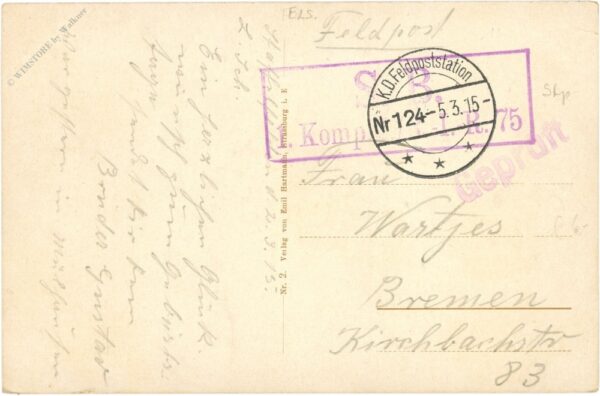 © WIMSTORE by Walkner
ELS.
Feldpost
S. B.
Komp. R. 75
K.D. Feldpoststation
Nr 124 - 5.3.15 -
* * *
Geprüft
Stp
Frau
Wartjes
Bremen
Kirchbachstr
83
Nr. 2. Verlag von Emil Hartmann, Strassburg i. E
d 2.3.15.
L. Joh.
Ein herzlichen Glück
wunsch zum Geburts
tage sendet dir dein
Bruder Gustav
Vorgestern in Mülhausen